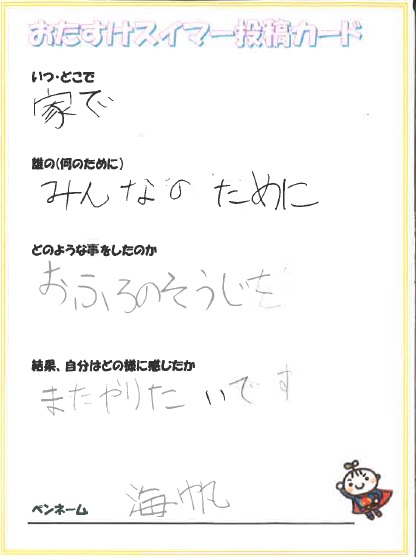 おたすけスイマー投稿カード
いつ・どこで
家で
誰の(何のために)
みんなのために
どのような事をしたのか
おふろのそうじを
結果、自分はどの様に感じたか
またやりたいです
ペンネーム
海帆